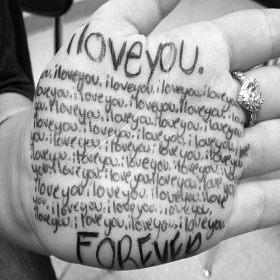 iloveyou.
you. iloveyou. iloveyou. iloveyou. iloveyou.
iloveyou. iloveyou. iloveyou. iloveyou.
you. iloveyou. iloveyou. iloveyou. iloveyou.
iloveyou. iloveyou. iloveyou. iloveyou.
iloveyou. iloveyou. iloveyou. iloveyou.
iloveyou. iloveyou. iloveyou. iloveyou.
iloveyou. iloveyou. iloveyou. iloveyou.
iloveyou. iloveyou. iloveyou. iloveyou.
iloveyou. iloveyou. iloveyou. iloveyou.
you. iloveyou. iloveyou. iloveyou.
iloveyou. iloveyou. iloveyou. iloveyou.
FOREVER